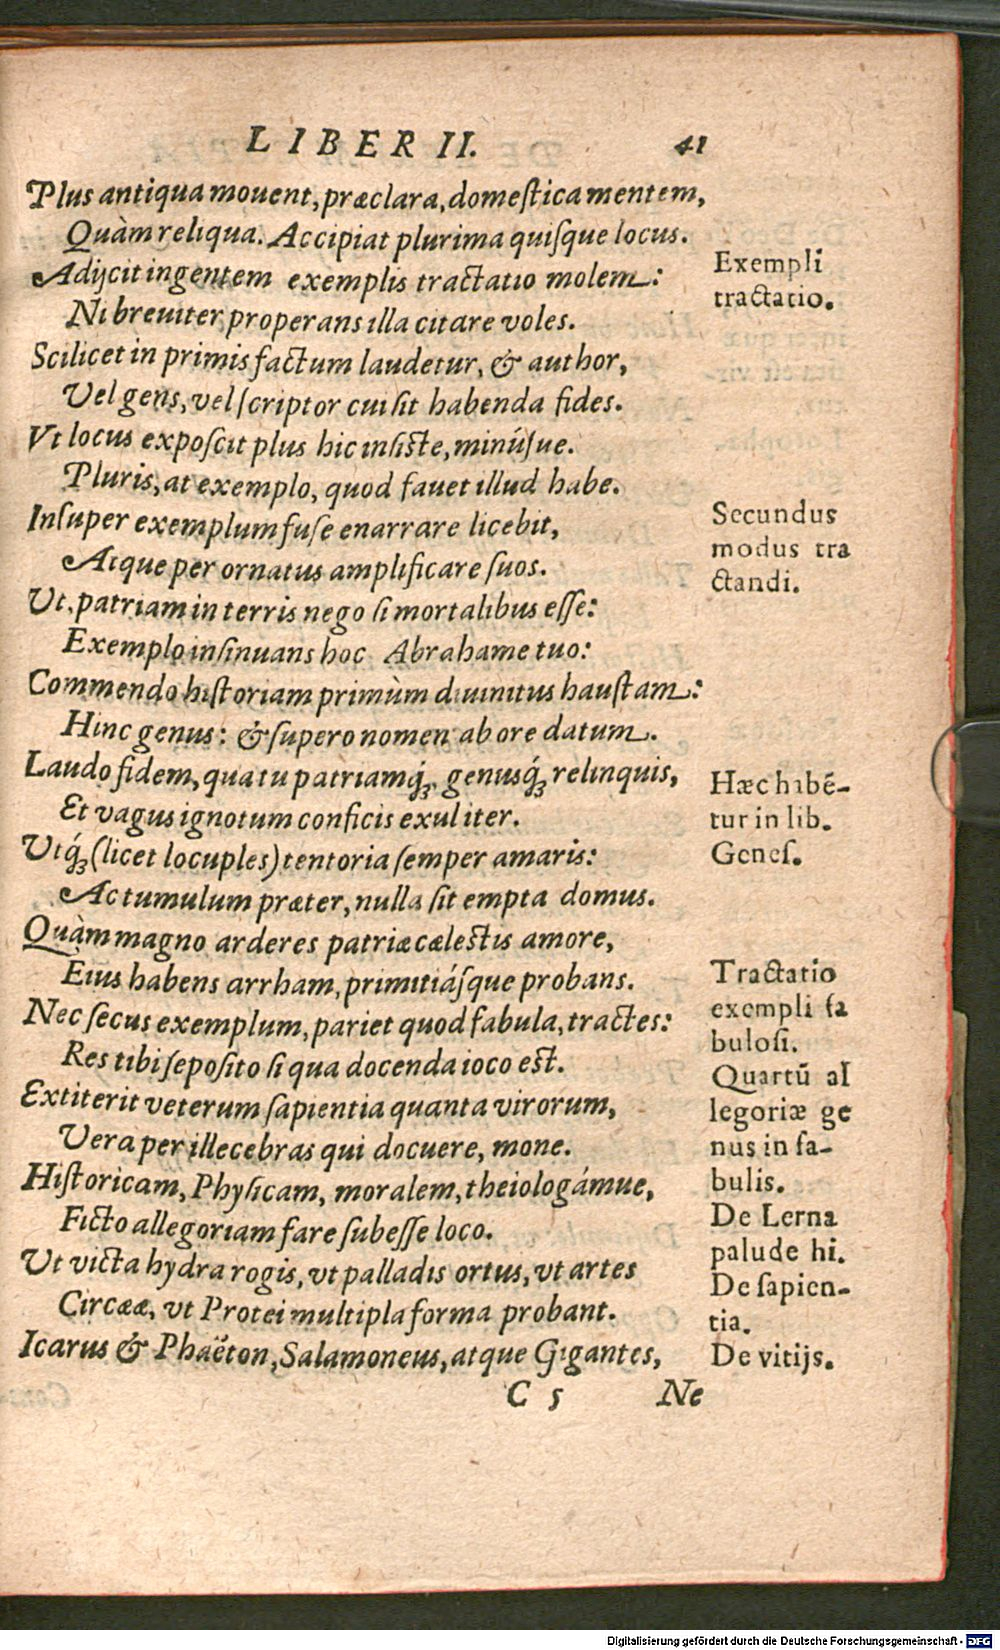 LIBER II. 41
Plus antiqua mouent, præclara, domeſtica mentem,
Quàm reliqua. Accipiat plurima quiſque locus.
Adijcit ingentem exemplis tractatio molem:
Exempli
tractatio.
Ni breuiter properans illa citare voles.
Scilicet in primis factum laudetur, & author,
Vel gens, vel ſcriptor cui ſit habenda fides.
Vt locus expoſcit plus hic inſiſte, minúſue.
Pluris, at exemplo, quod fauet illud habe.
Inſuper exemplum fuſe enarrare licebit,
Secundus
modus tra
ctandi.
Atque per ornatus amplificare ſuos.
Vt, patriam in terris nego ſi mortalibus eſſe:
Exemplo inſinuans hoc Abrahame tuo:
Commendo hiſtoriam primùm diuinitus hauſtam:
Hinc genus: & ſupero nomen ab ore datum.
Laudo fidem, qua tu patriamq́;, genusq́; relinquis,
Hæc hibē-
tur in lib.
Geneſ.
Et vagus ignotum conficis exul iter.
Vtq́; (licet locuples) tentoria ſemper amaris:
Ac tumulum præter, nulla ſit empta domus.
Quàm magno arderes patriæ cæleſtis amore,
Eius habens arrham, primitiáſque probans.
Tractatio
exempli fa
buloſi.
Nec ſecus exemplum, pariet quod fabula, tractes:
Res tibi ſepoſito ſi qua docenda ioco eſt.
Quartū al
legoriæ ge
nus in fa-
bulis.
Extiterit veterum ſapientia quanta virorum,
Vera per illecebras qui docuere, mone.
Hiſtoricam, Phyſicam, moralem, theiologámue,
Ficto allegoriam fare ſubeſſe loco.
De Lerna
palude hi.
Vt victa hydra rogis, vt palladis ortus, vt artes
De ſapien-
tia.
Circææ, vt Protei multipla forma probant.
Icarus & Phaëton, Salamoneus, atque Gigantes,
De vitijs.
C 5 Ne
Digitalisierung gefördert durch die Deutsche Forschungsgemeinschaft - DFG